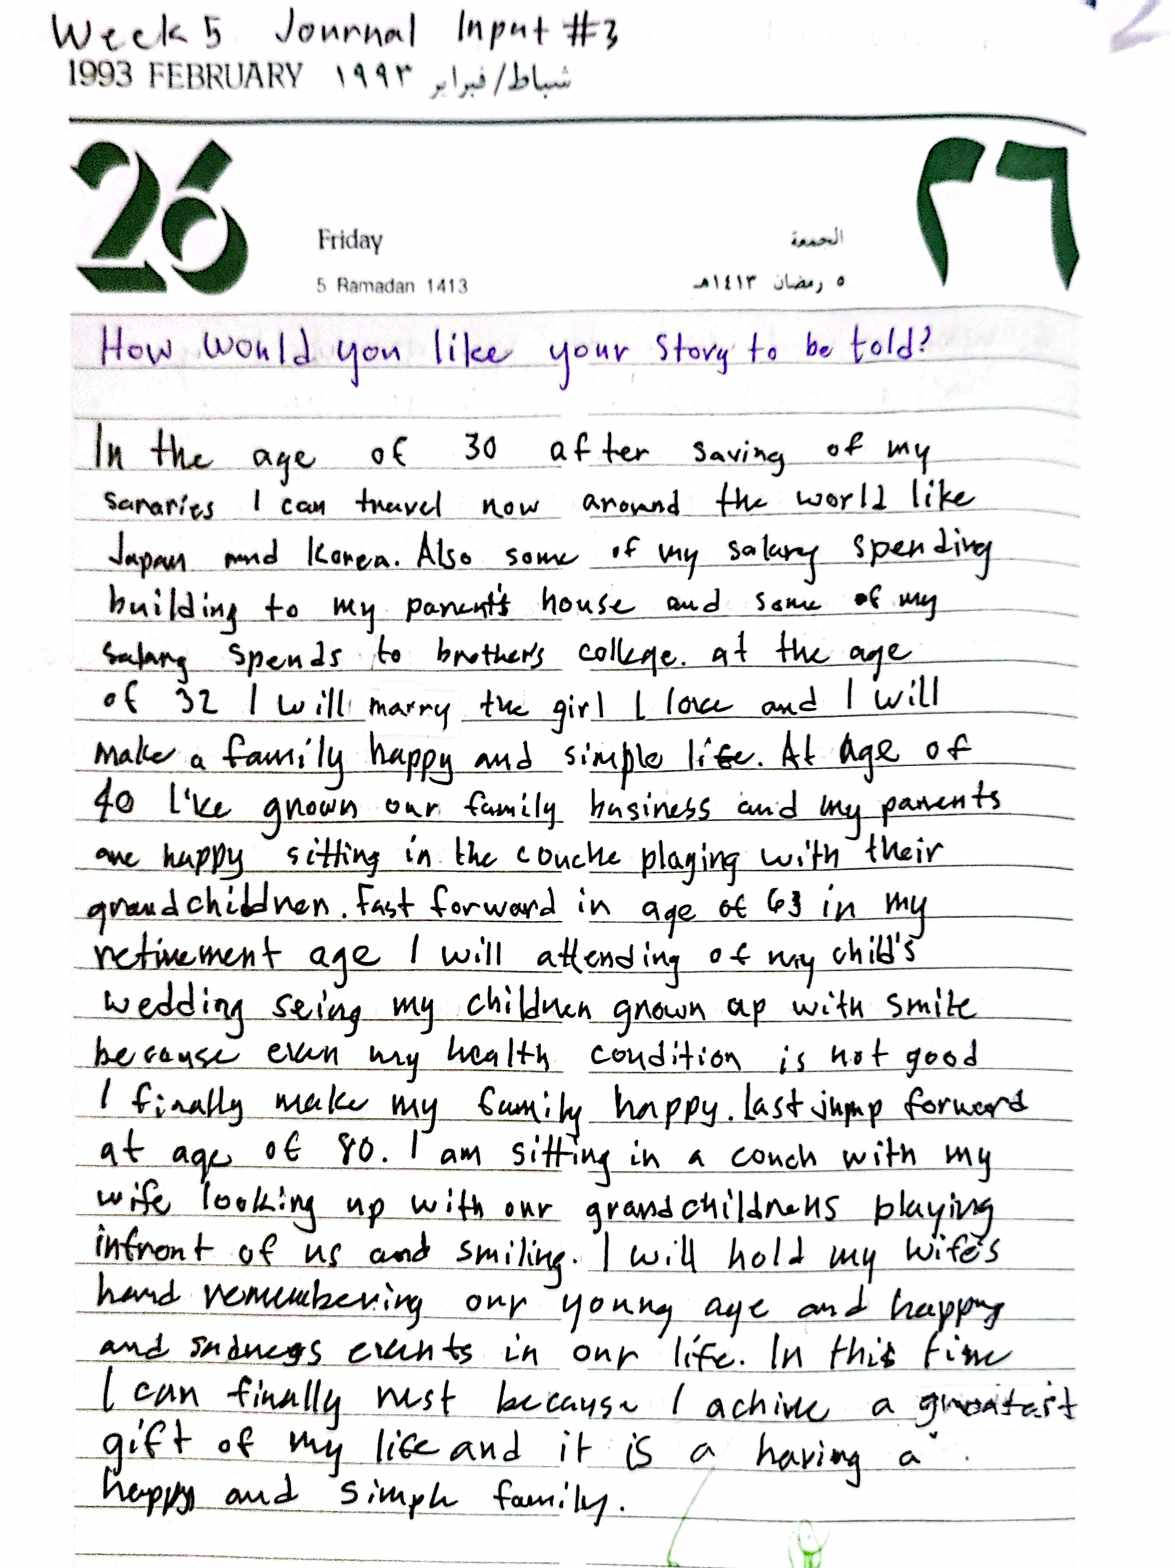 Week 5 Journal Input #3
1993 FEBRUARY ١٩٩٣ شباط/فبراير
26 ٢٦
Friday الجمعة
5 Ramadan 1413 ٥ رمضان ١٤١٣هـ
How would you like your story to be told?
In the age of 30 after saving of my
sararies I can travel now around the world like
Japan and Korea. Also some of my salary spending
building to my parent's house and some of my
salary spends to brother's college. at the age
of 32 I will marry the girl I love and I will
make a family happy and simple life. At Age of
40 I've grown our family business and my parents
are happy sitting in the couche playing with their
grandchildren. Fast forward in age of 63 in my
retirement age I will attending of my child's
wedding seing my children grown up with smile
because even my health condition is not good
I finally make my family happy. Last jump forward
at age of 80. I am sitting in a couch with my
wife looking up with our grandchildrens playing
infront of us and smiling. I will hold my wife's
hand remembering our young age and happy
and sadness events in our life. In this time
I can finally rest because I achive a greatest
gift of my life and it is a having a
happy and simple family.